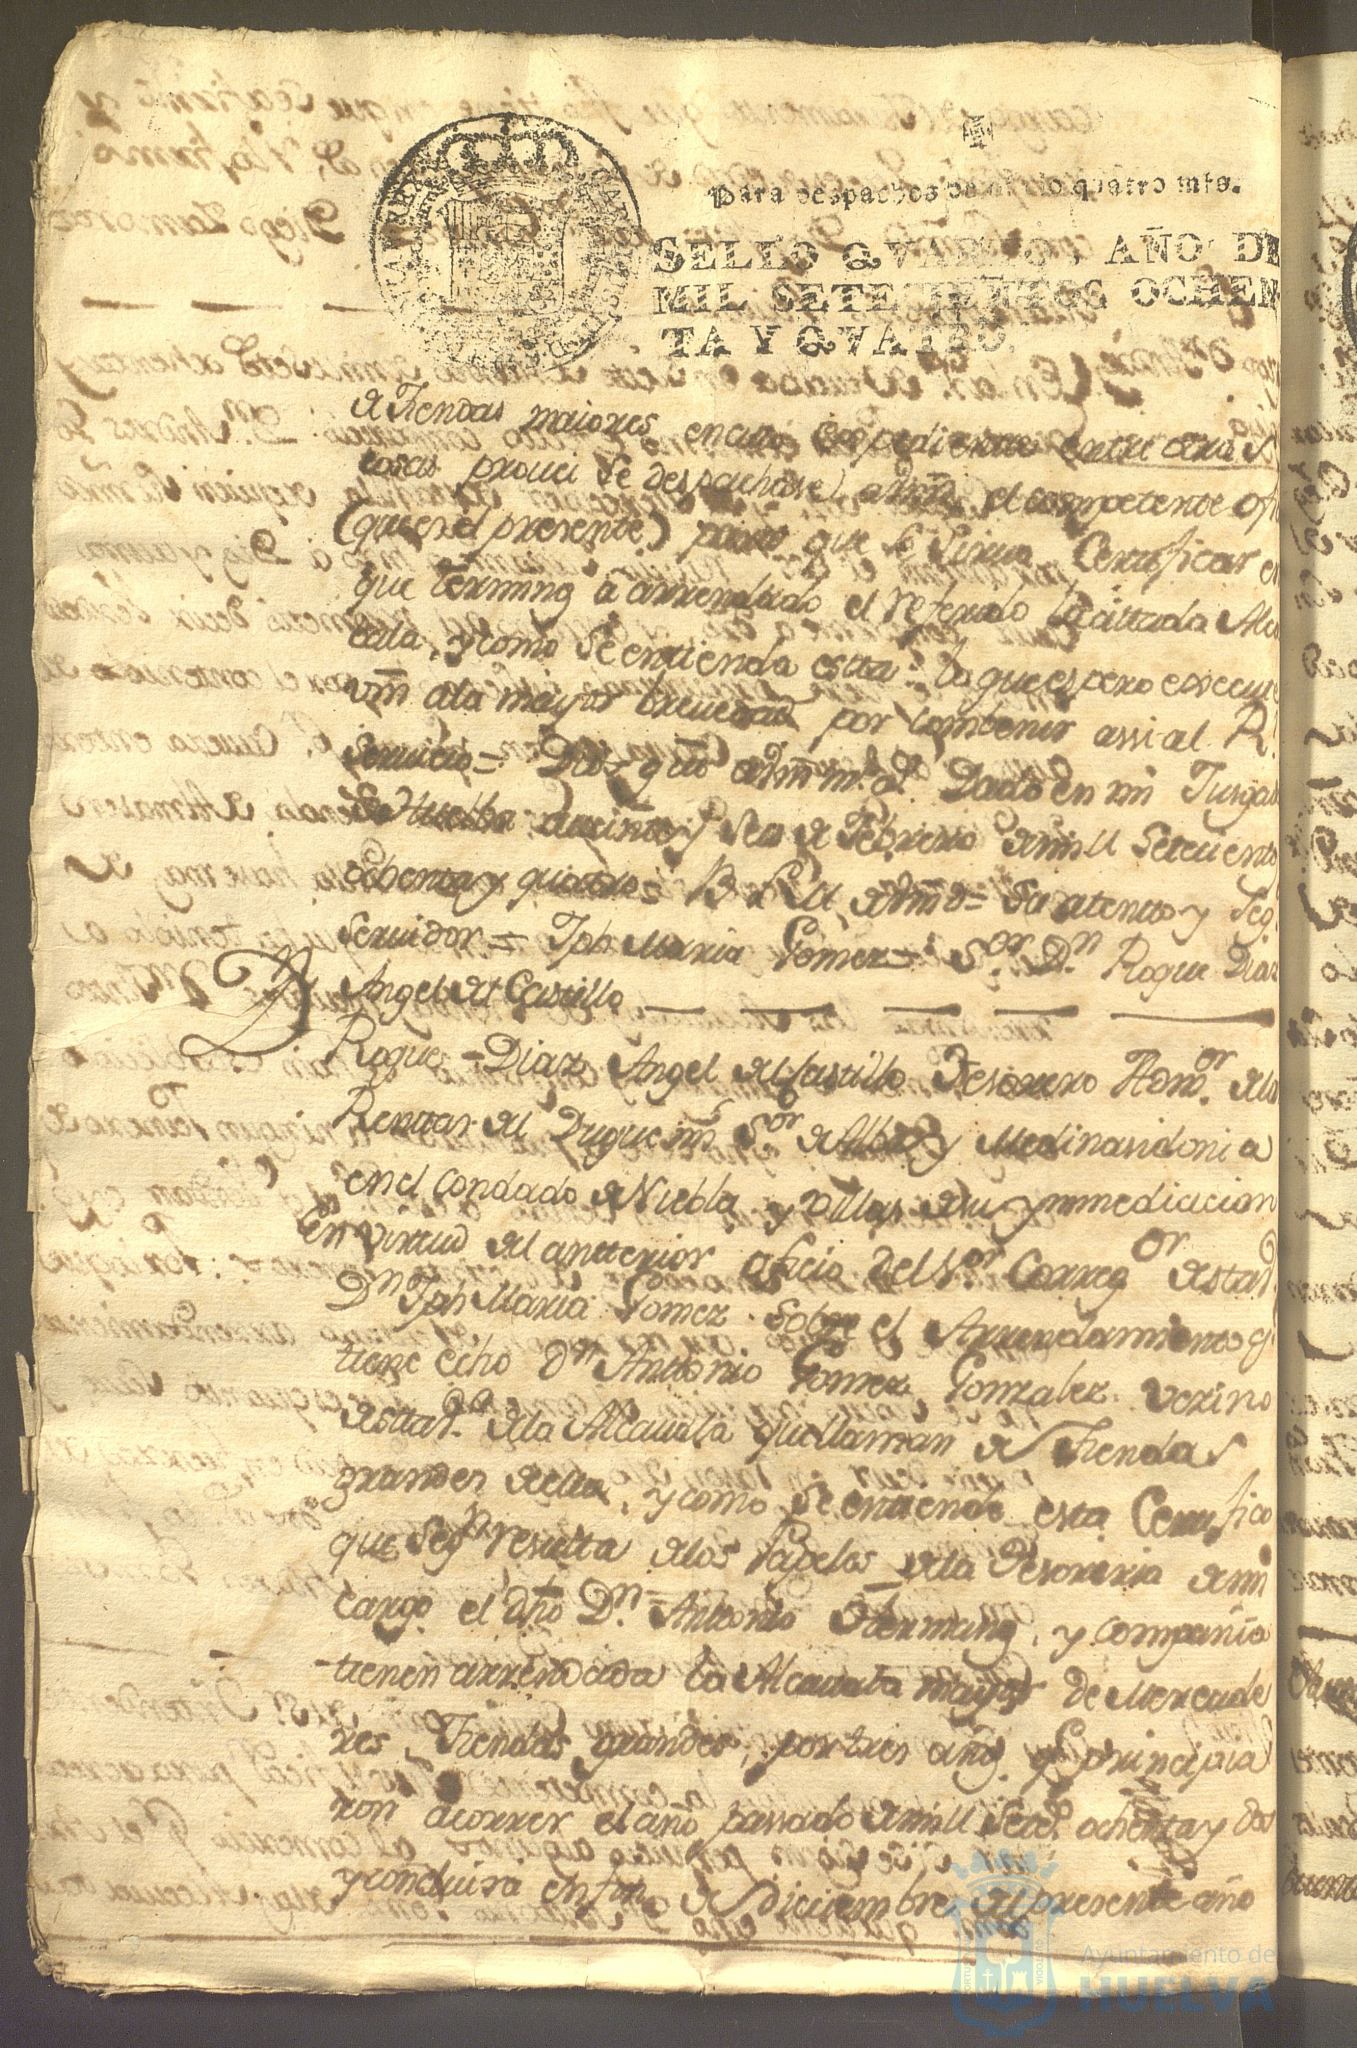 Para despachos de oficio quatro mrs.
SELLO QVARTO, AÑO DE
MIL SETECIENTOS OCHEN
TA Y QVATRO.
de Tiendas maiores en cuio expediente entre otras
cosas prouei se despachase a vmd el competente ofi
(que es el presente) para que se sirva Certificar en
que termino a arrendado el referido la cittada Alca
vala, y como se entienda esta: lo que espero execute
vm a la mayor brevedad por combenir assi al R.l
servicio = Dios gue a vmd m.s a.s Dado en mi Juzgado
de Huelba a veinte y seis de Febrero de mill setecientos
ochenta y quatro = B L M de vmd = su atento y seg.
servidor = Jph Maria Gomez = S.or D.n Roque Diaz
Angel del Castillo
D Roque Diaz Angel del Castillo Tesorero Honor. de las
Rentas del Duque mi S.or de Alba y Medinasidonia
en el Condado de Niebla y Villas de su ynmediacion
En virtud del antterior oficio del S.or Correg.or de esta
D.n Jph Maria Gomez sobre el Arrendamiento q.
tiene echo D.n Antonio Gomez Gonzalez vezino
de esta de la Alcauala que llaman de Tiendas
grandes de ella, y como se entiende esta Certifico
que seg.n resulta de los Papeles de la Tesoreria de mi
cargo el dho D.n Antonio y compañia
tienen arrendada la Alcauala mayor de Mercade
res Tiendas grandes, por tres años q. principia
ron a correr el año passado de mill setec.s ochenta y dos
y concluira en fin de Diciembre del presente año
Ayuntamiento de
HUELVA